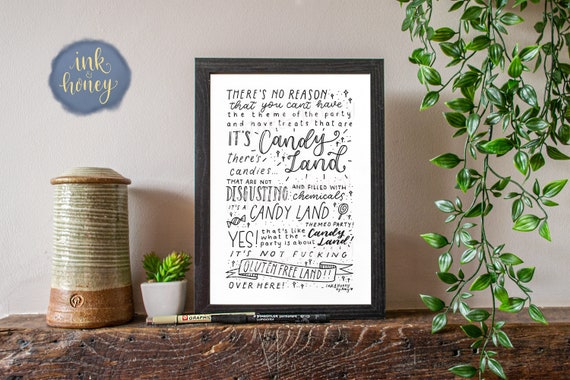 ink
&
honey
THERE'S NO REASON
that you cant have
the theme of the party
and have treats that are
IT'S Candy
there's Land
candies...
THAT ARE NOT
DISGUSTING AND FILLED WITH
chemicals
IT'S A CANDY LAND
THEMED PARTY!
YES! that's like
what the Candy
party is about Land!
IT'S NOT FUCKING
GLUTEN FREE LAND!!
OVER HERE!
GRAPHIC
STAEDTLER